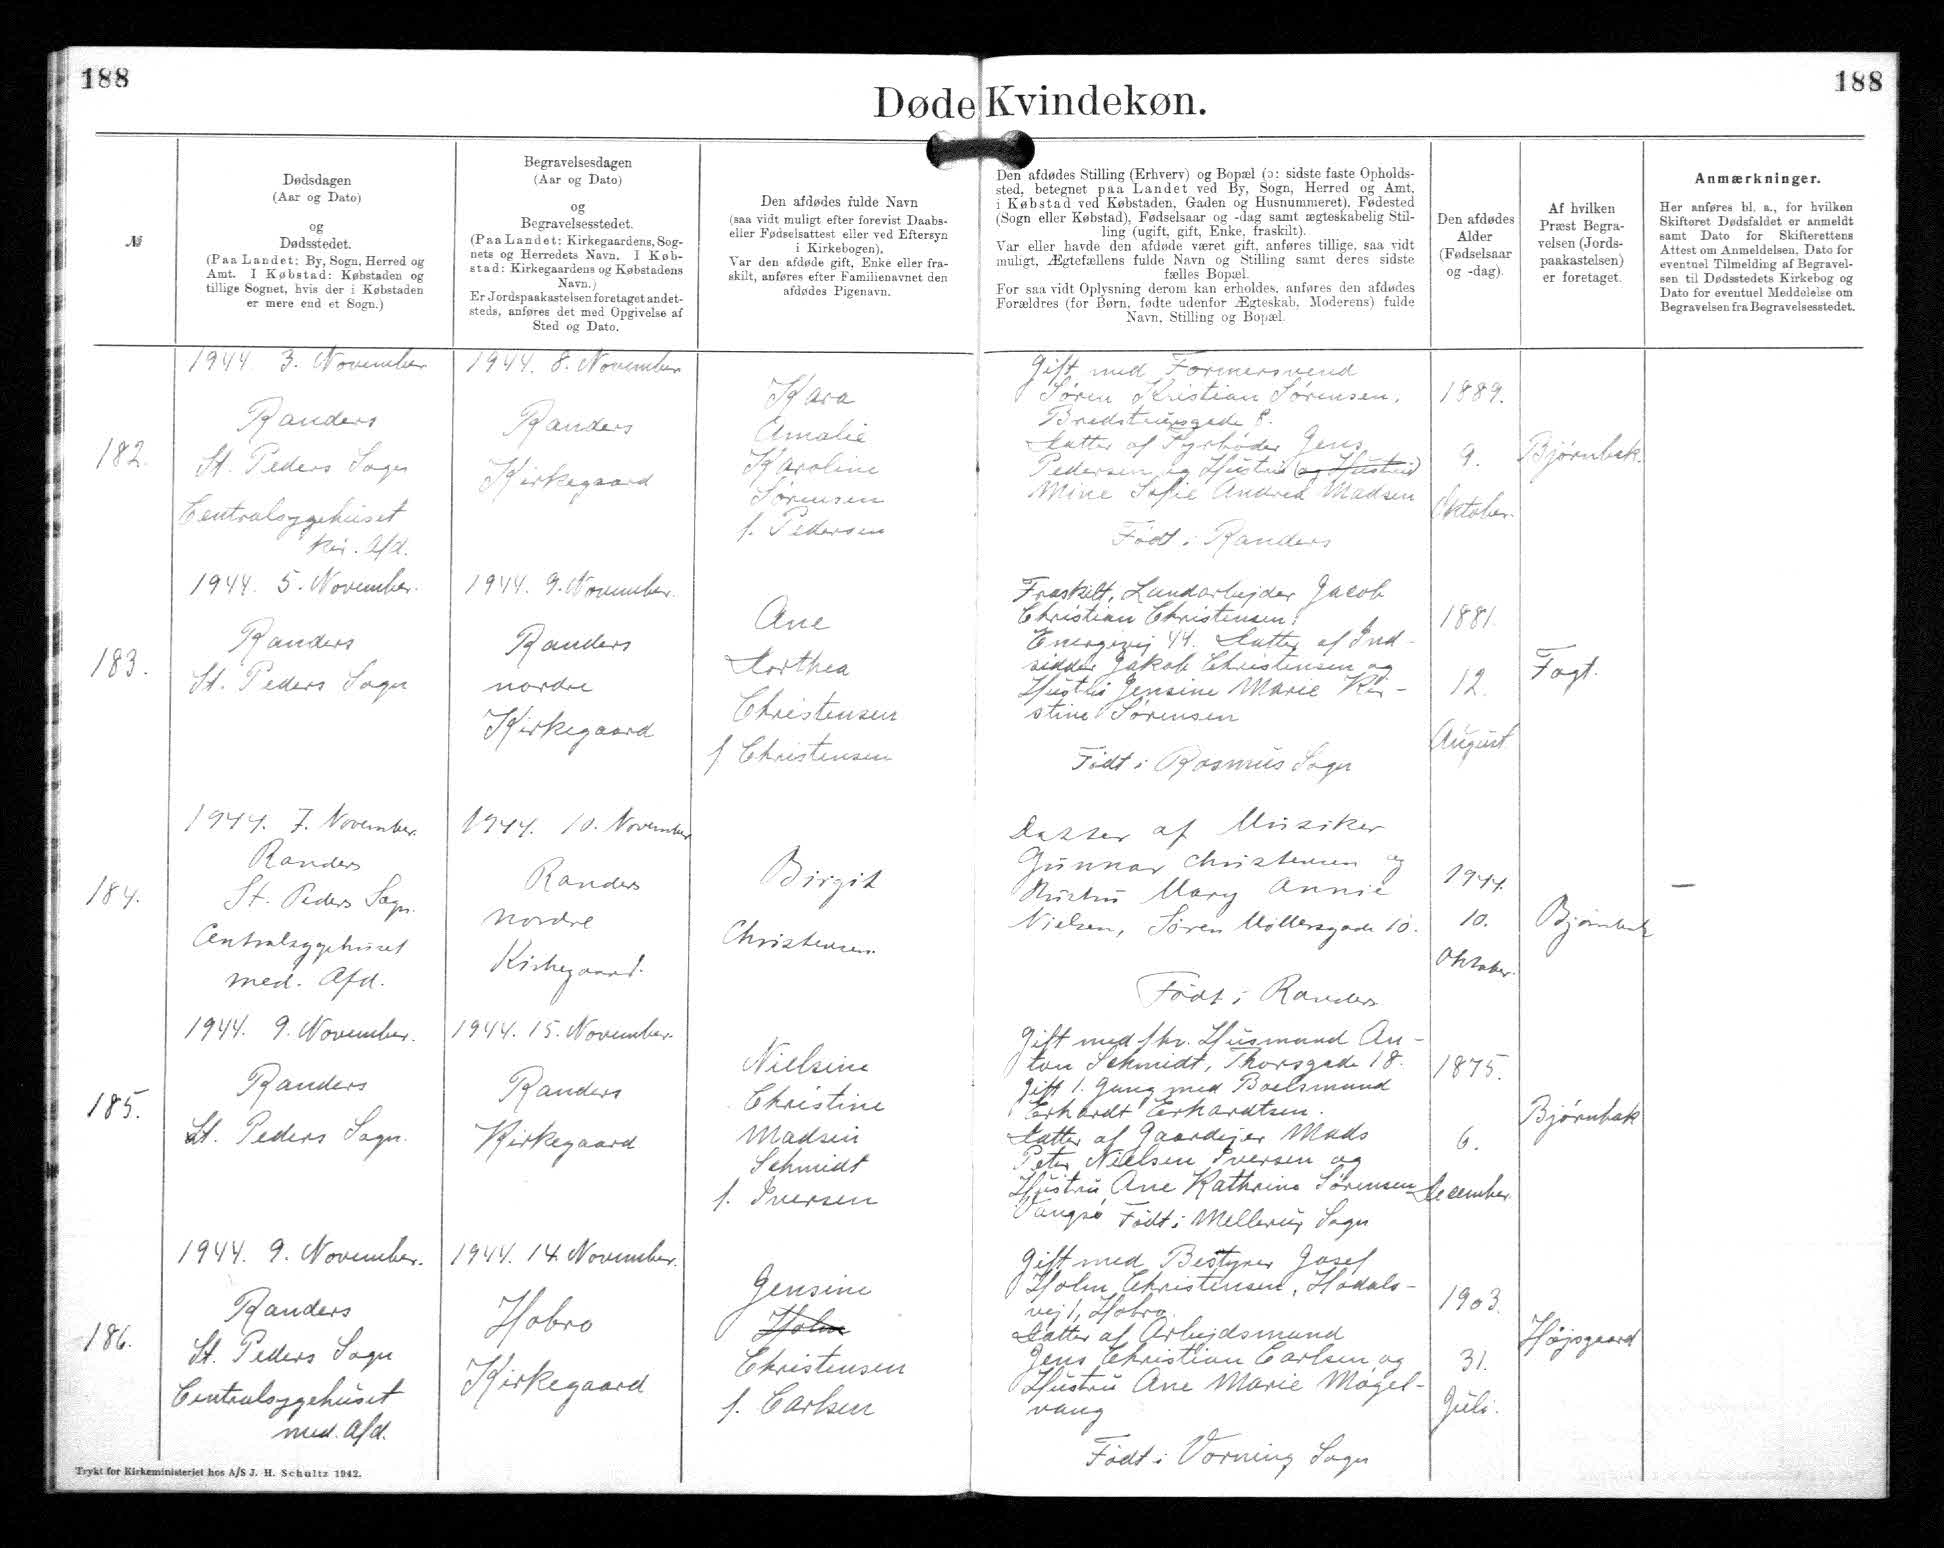 188
188
Døde Kvindekøn.
№
Dødsdagen
(Aar og Dato)
og
Dødsstedet.
(Paa Landet: By, Sogn, Herred og
Amt. I Købstad: Købstaden og
tillige Sognet, hvis der i Købstaden
er mere end et Sogn.)
Begravelsesdagen
(Aar og Dato)
og
Begravelsesstedet.
(Paa Landet: Kirkegaardens, Sog-
nets og Herredets Navn. I Køb-
stad: Kirkegaardens og Købstadens
Navn.)
Er Jordspaakastelsen foretaget andet-
steds, anføres det med Opgivelse af
Sted og Dato.
Den afdødes fulde Navn
(saa vidt muligt efter forevist Daabs-
eller Fødselsattest eller ved Eftersyn
i Kirkebogen).
Var den afdøde gift, Enke eller fra-
skilt, anføres efter Familienavnet den
afdødes Pigenavn.
Den afdødes Stilling (Erhverv) og Bopæl (ɔ: sidste faste Opholds-
sted, betegnet paa Landet ved By, Sogn, Herred og Amt,
i Købstad ved Købstaden, Gaden og Husnummeret). Fødested
(Sogn eller Købstad), Fødselsaar og -dag samt ægteskabelig Stil-
ling (ugift, gift, Enke, fraskilt).
Var eller havde den afdøde været gift, anføres tillige, saa vidt
muligt, Ægtefællens fulde Navn og Stilling samt deres sidste
fælles Bopæl.
For saa vidt Oplysning derom kan erholdes, anføres den afdødes
Forældres (for Børn, fødte udenfor Ægteskab, Moderens) fulde
Navn, Stilling og Bopæl.
Den afdødes
Alder
(Fødselsaar
og -dag).
Af hvilken
Præst Begra-
velsen (Jords-
paakastelsen)
er foretaget.
Anmærkninger.
Her anføres bl. a., for hvilken
Skifteret Dødsfaldet er anmeldt
samt Dato for Skifterettens
Attest om Anmeldelsen, Dato for
eventuel Tilmelding af Begravel-
sen til Dødsstedets Kirkebog og
Dato for eventuel Meddelelse om
Begravelsen fra Begravelsesstedet.
182.
1944. 3. November
Randers
St. Peders Sogn
Centralsygehuset
kir. Afd.
1944. 8. November
Randers
Kirkegaard
Kara
Amalie
Karoline
Sørensen
f. Pedersen
Gift med Formersvend
Søren Kristian Sørensen,
Bredstrupsgade 8.
Datter af Fyrbøder Jens
Pedersen og Hustru (og Hustru)
Mine Sofie Andrea Madsen
Født i Randers
1889.
9.
Oktober.
Bjørnbak.
183.
1944. 5. November.
Randers
St. Peders Sogn
1944. 9. November.
Randers
nordre
Kirkegaard
Ane
Dorthea
Christensen
f. Christensen
Fraskilt, Landarbejder Jacob
Christian Christensen,
Energivej 44. Datter af Ind-
sidder Jakob Christensen og
Hustru Jensine Marie Kir-
stine Sørensen
Født i Rasmus Sogn
1881.
12.
August
Fogt.
184.
1944. 7. November.
Randers
St. Peders Sogn.
Centralsygehuset
med. Afd.
1944. 10. November
Randers
nordre
Kirkegaard.
Birgit
Christensen.
Datter af Musiker
Gunnar Christensen og
Hustru Mary Annie
Nielsen, Søren Møllersgade 10.
Født i Randers
1944.
10.
Oktober.
Bjørnbak
—
185.
1944. 9. November.
Randers
St. Peders Sogn.
1944. 15. November.
Randers
Kirkegaard
Nielsine
Christine
Madsen
Schmidt
f. Iversen
Gift med fhv. Husmand An-
ton Schmidt, Thorsgade 18.
Gift 1. Gang med Boelsmand
Erhardt Erhardtsen.
Datter af Gaardejer Mads
Peter Nielsen Iversen og
Hustru Ane Kathrine Sørensen
Født i Mellerup Sogn
1875.
6.
December.
Bjørnbak
186.
1944. 9. November.
Randers
St. Peders Sogn
Centralsygehuset
med. Afd.
1944. 14. November.
Hobro
Kirkegaard
Jensine
Holm
Christensen
f. Carlsen
Gift med Bestyrer Josef
Holm Christensen, Hodals-
vej 1, Hobro.
Datter af Arbejdsmand
Jens Christian Carlsen og
Hustru Ane Marie Møgel-
vang
Født i Vorning Sogn
1903.
31.
Juli.
Højsgaard
Trykt for Kirkeministeriet hos A/S J. H. Schultz 1942.